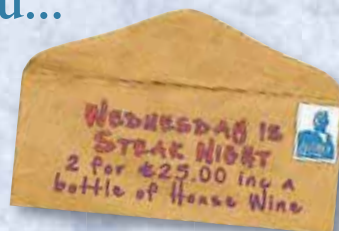 u...
WEDNESDAY IS
STEAK NIGHT
2 for £25.00 inc a
bottle of House Wine